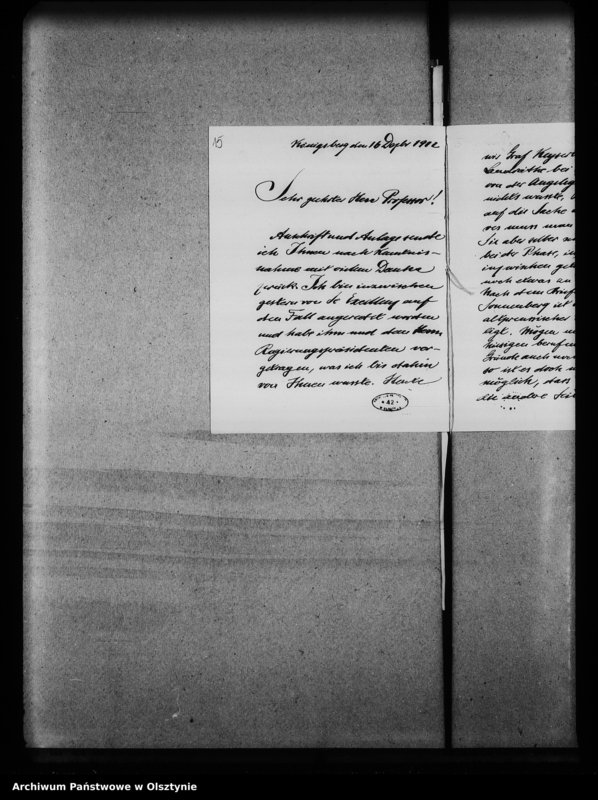 15
Königsberg den 16 Dezbr 1902
Sehr geehrter Herr Professor!
Anschrift und Anlage sende
ich Ihnen nach Kenntnis-
nahme mit vielem Danke
zurück. Ich bin inzwischen
gestern von Sr Excellenz auf
den Fall angeredet worden
und habe ihm und dem Herrn
Regierungspräsidenten vor-
getragen, was ich bis dahin
von Ihnen wusste. Heute
42
mir Graf Keyser
Landräthe bei
von der Angeleg
nichts wusste,
auf die Sache
muss man
Sie aber selber
bei der Phase, in
inzwischen
noch etwas zu
Nach dem Brief
Sonnenberg ist
altpreussischer
Mögen
hiesigen berufen
Gründe auch
so ist es doch
möglich, dass
die andere Sei
Archiwum Państwowe w Olsztynie